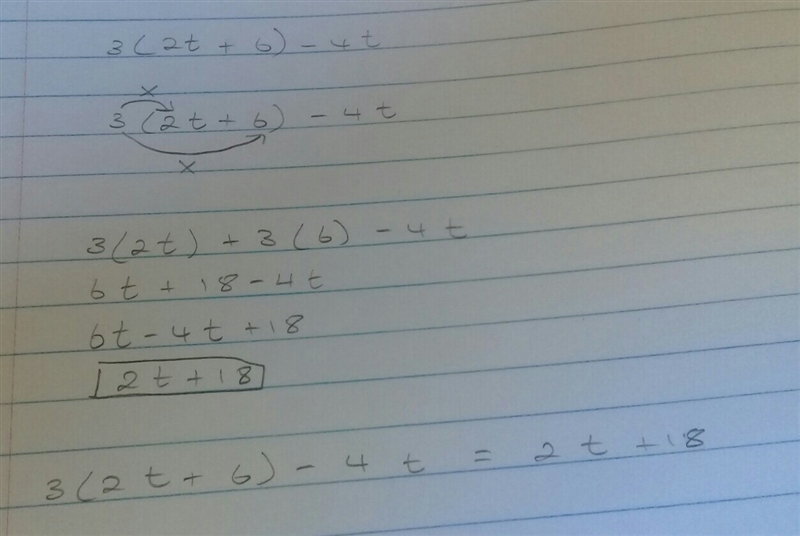 3(2t + 6) - 4t
×
3(2t + 6) - 4t
×
3(2t) + 3(6) - 4t
6t + 18 - 4t
6t - 4t + 18
2t + 18
3(2t + 6) - 4t = 2t + 18